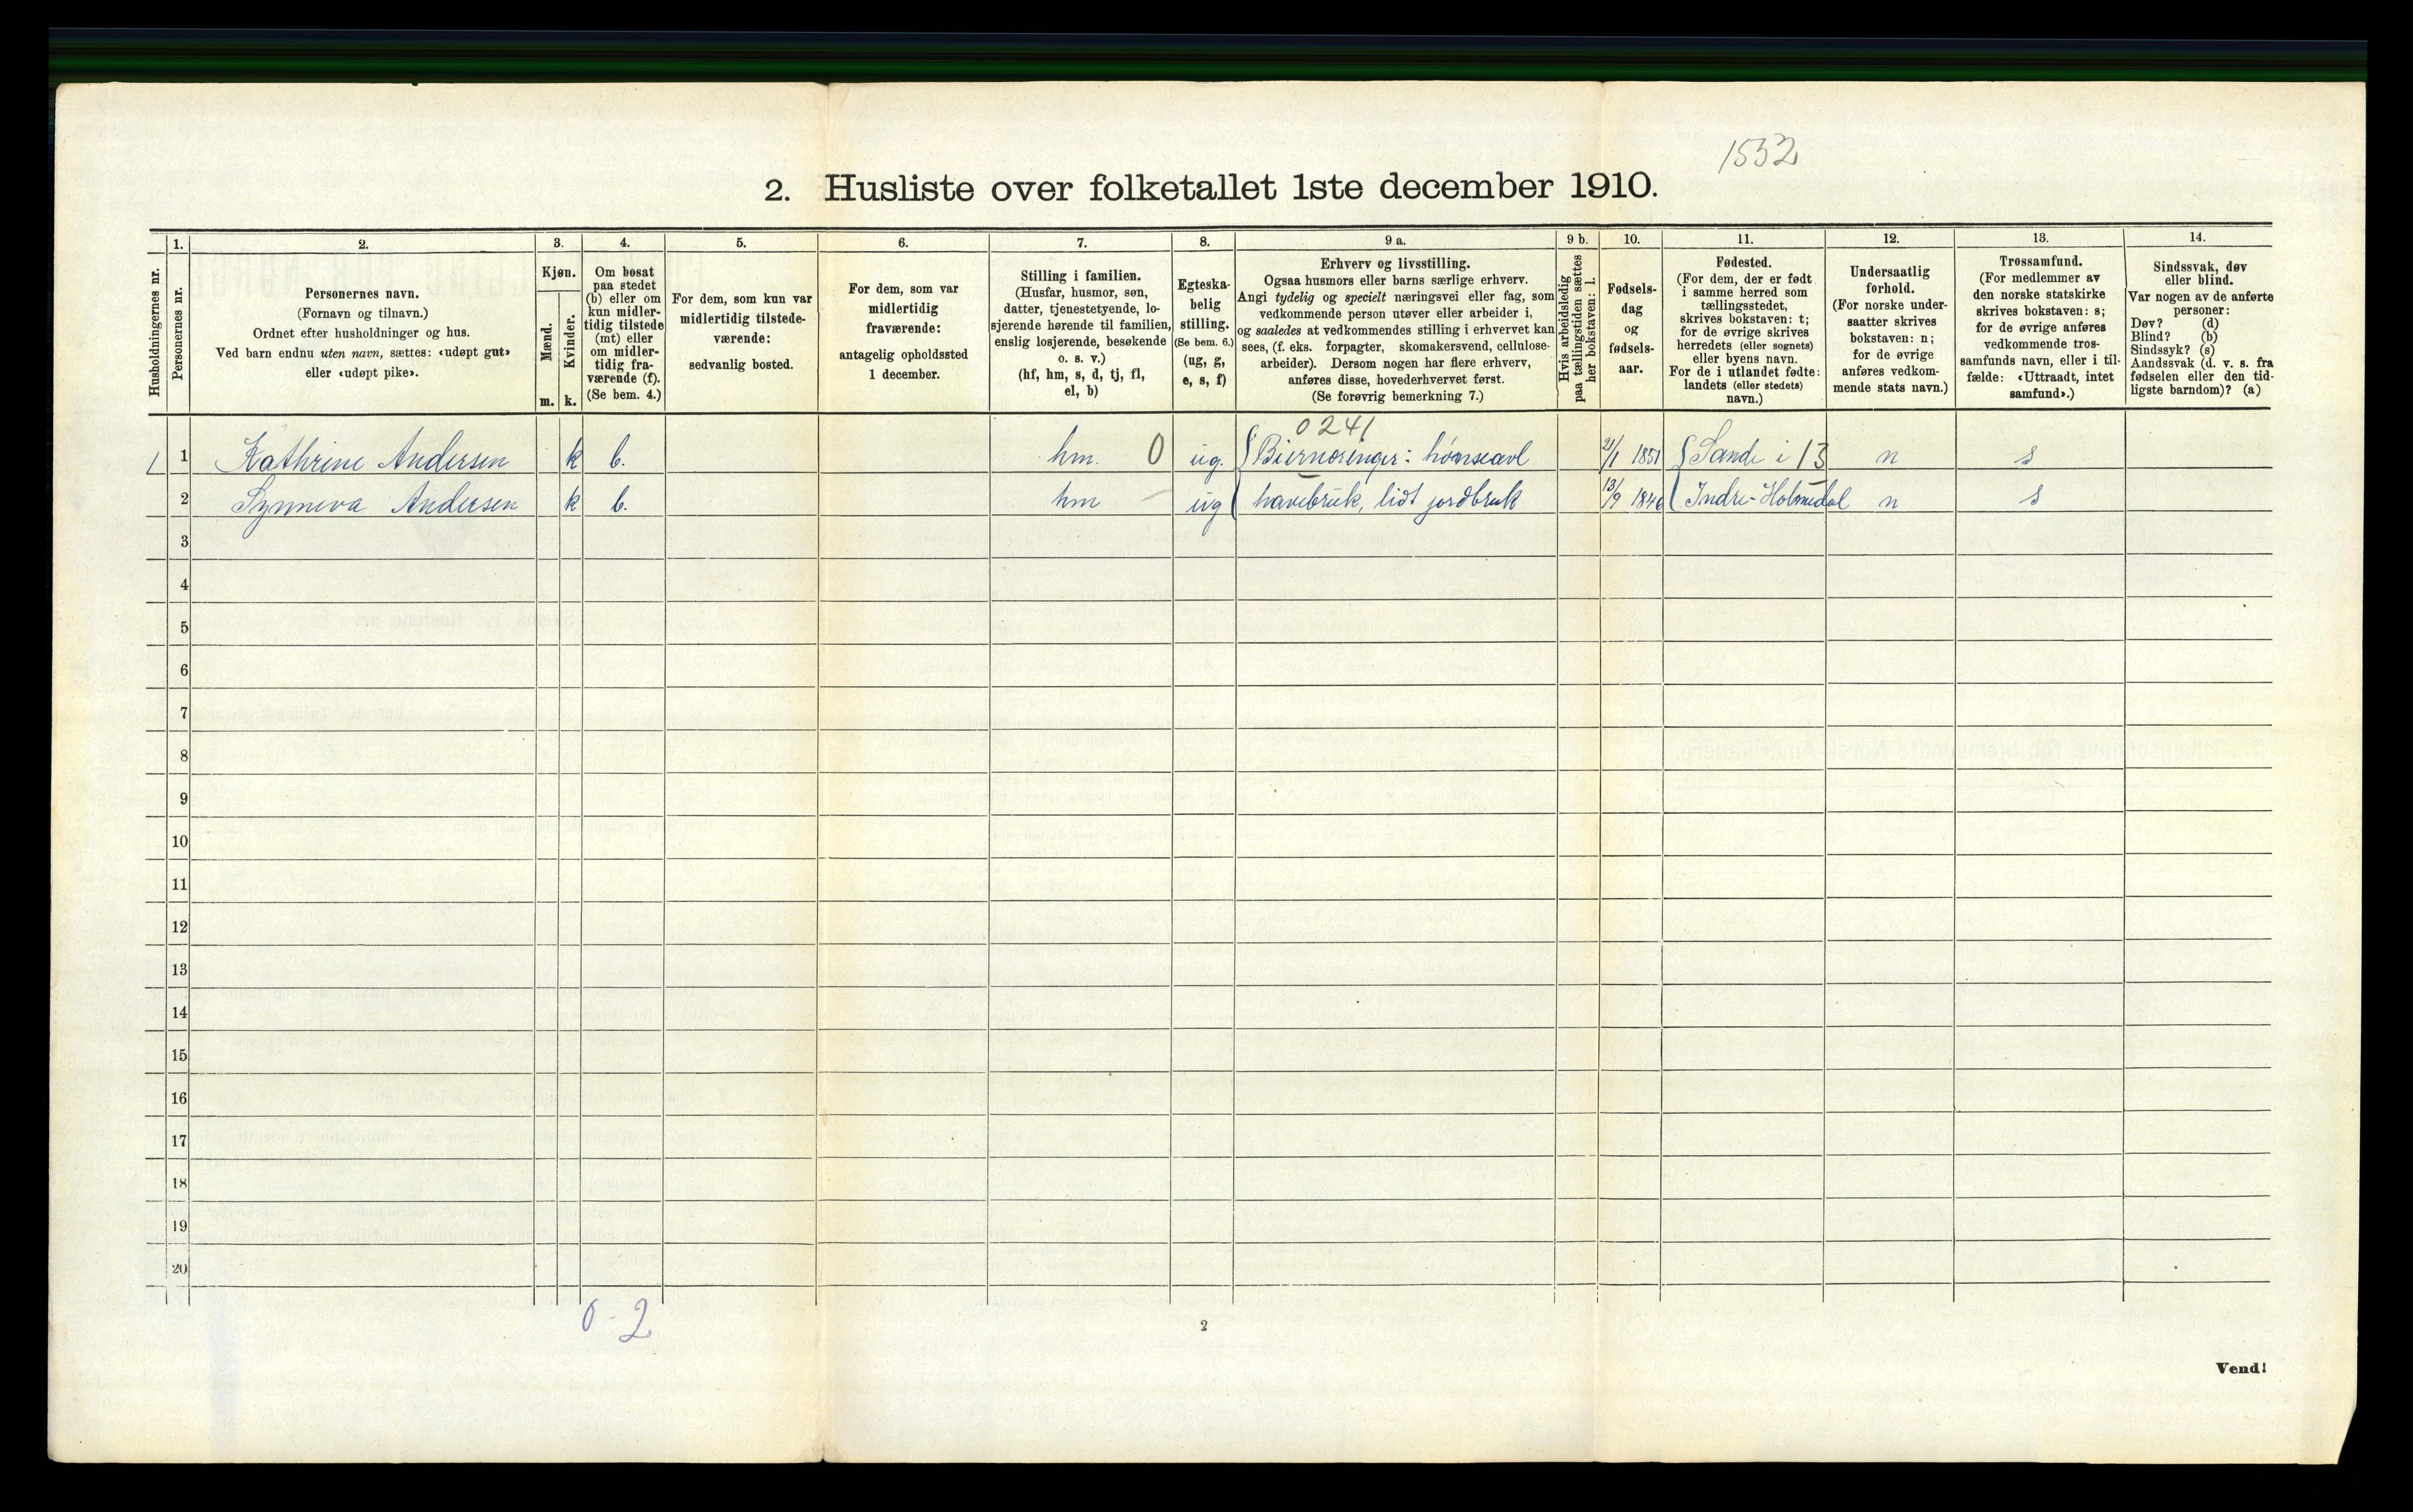 1532
2. Husliste over folketallet 1ste december 1910.
Husholdningernes nr.
1.
Personernes nr.
2.
Personernes navn.
(Fornavn og tilnavn.)
Ordnet efter husholdninger og hus.
Ved barn endnu uten navn, sættes: «udøpt gut»
eller «udøpt pike».
3.
Kjøn.
Mænd.
Kvinder.
m. k.
4.
Om bosat
paa stedet
(b) eller om
kun midler-
tidig tilstede
(mt) eller
om midler-
tidig fra-
værende (f).
(Se bem. 4.)
5.
For dem, som kun var
midlertidig tilstede-
værende:
sedvanlig bosted.
6.
For dem, som var
midlertidig
fraværende:
antagelig opholdssted
1 december.
7.
Stilling i familien.
(Husfar, husmor, søn,
datter, tjenestetyende, lo-
sjerende hørende til familien,
enslig losjerende, besøkende
o. s. v.)
(hf, hm, s, d, tj, fl,
el, b)
8.
Egteska-
belig
stilling.
(Se bem. 6.)
(ug, g,
e, s, f)
9 a.
Erhverv og livsstilling.
Ogsaa husmors eller barns særlige erhverv.
Angi tydelig og specielt næringsvei eller fag, som
vedkommende person utøver eller arbeider i,
og saaledes at vedkommendes stilling i erhvervet kan
sees, (f. eks. forpagter, skomakersvend, cellulose-
arbeider). Dersom nogen har flere erhverv,
anføres disse, hovederhvervet først.
(Se forøvrig bemerkning 7.)
9 b.
Hvis arbeidsledig
paa tællingstiden sættes
her bokstaven: l.
10.
Fødsels-
dag
og
fødsels-
aar.
11.
Fødested.
(For dem, der er født
i samme herred som
tællingsstedet,
skrives bokstaven: t;
for de øvrige skrives
herredets (eller sognets)
eller byens navn.
For de i utlandet fødte:
landets (eller stedets)
navn.)
12.
Undersaatlig
forhold.
(For norske under-
saatter skrives
bokstaven: n;
for de øvrige
anføres vedkom-
mende stats navn.)
13.
Trossamfund.
(For medlemmer av
den norske statskirke
skrives bokstaven: s;
for de øvrige anføres
vedkommende tros-
samfunds navn, eller i til-
fælde: «Uttraadt, intet
samfund».)
14.
Sindssvak, døv
eller blind.
Var nogen av de anførte
personer:
Døv? (d)
Blind? (b)
Sindssyk? (s)
Aandssvak (d. v. s. fra
fødselen eller den tid-
ligste barndom)? (a)
0241
1 1 Kathrine Andersen k b. hm. 0 ug. Biernæringer: hønseavl 21/1 1851 Sande i 13 n s
2 Synneva Andersen k b. hm ug havebruk, lidt jordbruk 13/9 1846 Indre-Holmedal n s
3
4
5
6
7
8
9
10
11
12
13
14
15
16
17
18
19
20
0-2
2
Vend!